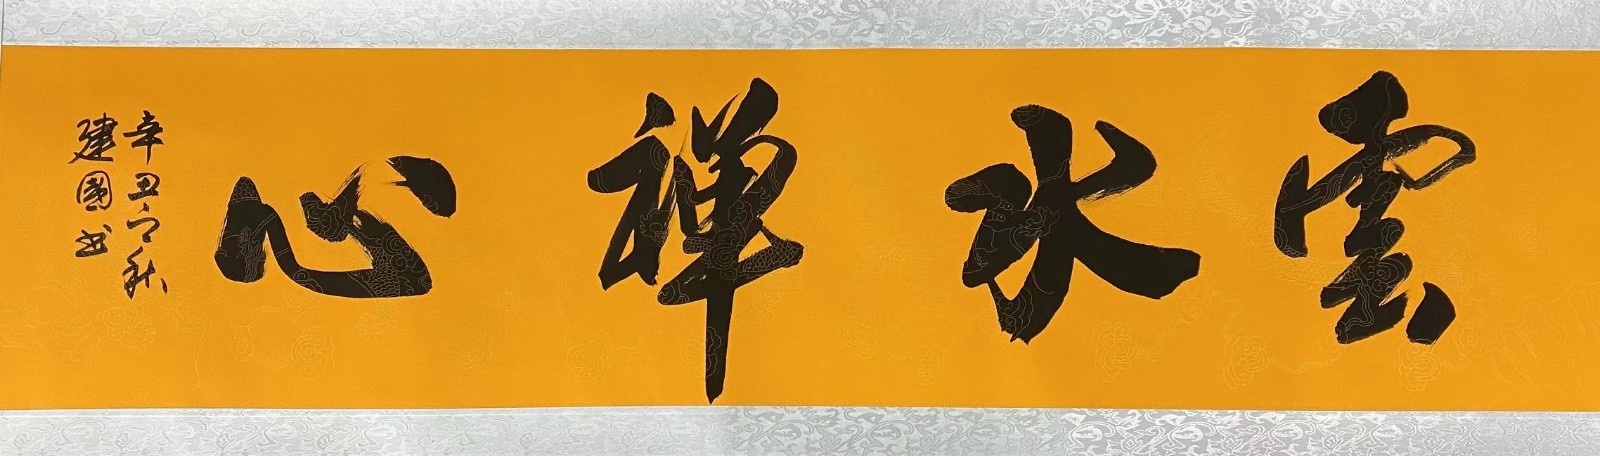 雲水禅心
辛丑之秋
建國书